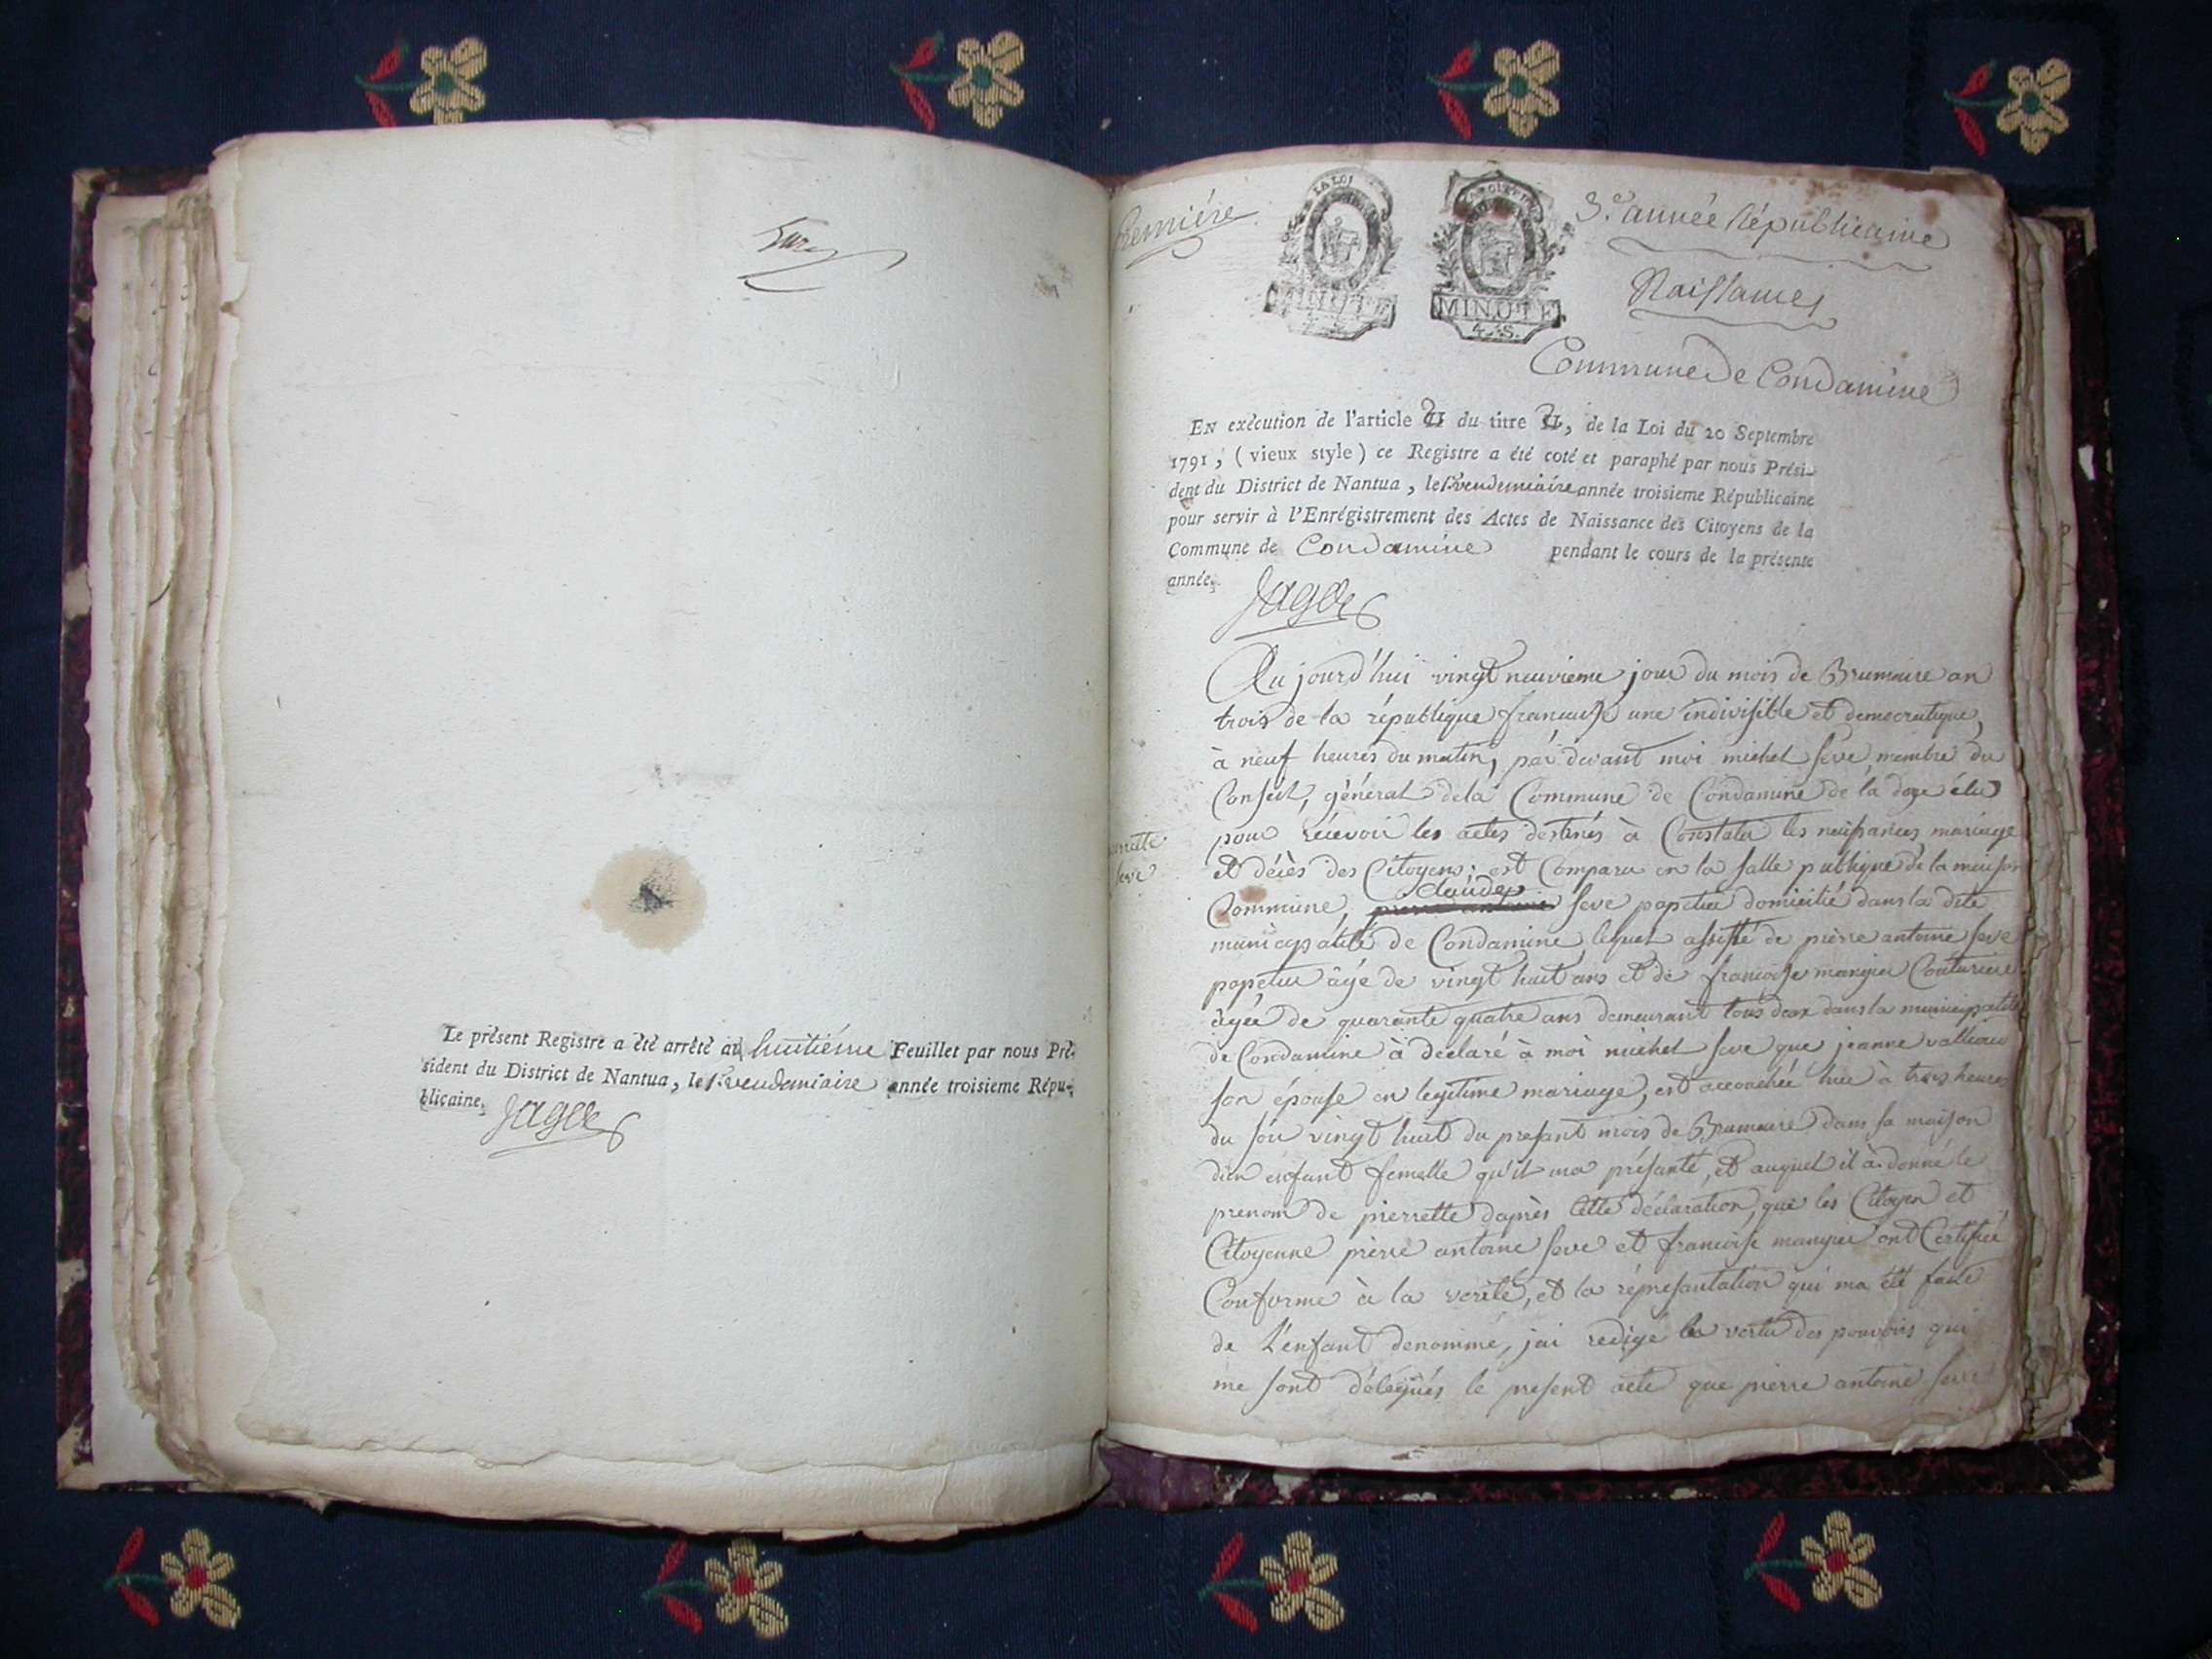 Le présent Registre a été arrêté au huitiéme Feuillet par nous Pré-
sident du District de Nantua, le 1er vendemiaire année troisieme Répu-
blicaine.
Jagot
premiére
LA LOI
MINUTE
MINUTE
4. S.
3.e année Républicaine
Naissances
Commune De Condamine
EN exècution de l'article II du titre II, de la Loi du 20 Septembre
1791, (vieux style) ce Registre a été coté et paraphé par nous Prési-
dent du District de Nantua, le 1er vendemiaire année troisieme Républicaine
pour servir à l'Enrégistrement des Actes de Naissance des Citoyens de la
Commune de Condamine pendant le cours de la présente
année.
Jagot
Aujourd'hui vingt neuvieme jour du mois de Brumaire an
trois de la république francaise une indivisible et democratique,
à neuf heures du matin, par devant moi michel seve, membre du
Conseil, général dela Commune de Condamine de la doye élu
pour recevoir les actes destinés à Constater les naissances mariage
et décès des Citoyens; est Comparu en la salle publique de la maison
Commune, claude seve papetier domicilié dans la dite
municipalité de Condamine, lequel assisté de pierre antoine seve
papetier âgé de vingt huit ans et de francoise mangier Couturiere
âgée de quarante quatre ans demeurant tous deux dans la municipalité
de Condamine à déclaré à moi michel seve que jeanne
son épouse en legitime mariage, est accouchée hier à trois heures
du soir vingt huit du present mois de Brumaire dans sa maison
d'un enfant femelle qu'il ma présanté, et auquel il à donné le
prenom de pierrette d'après Cette déclaration, que les Citoyen et
Citoyenne pierre antoine seve et francoise mangier ont Certifiée
Conforme à la verité, et la réprésantation qui ma été faite
de L'enfant denommé, jai redigé en vertu des pouvoirs qui
me sont délégués le present acte que pierre antoine seve
pierrette
seve